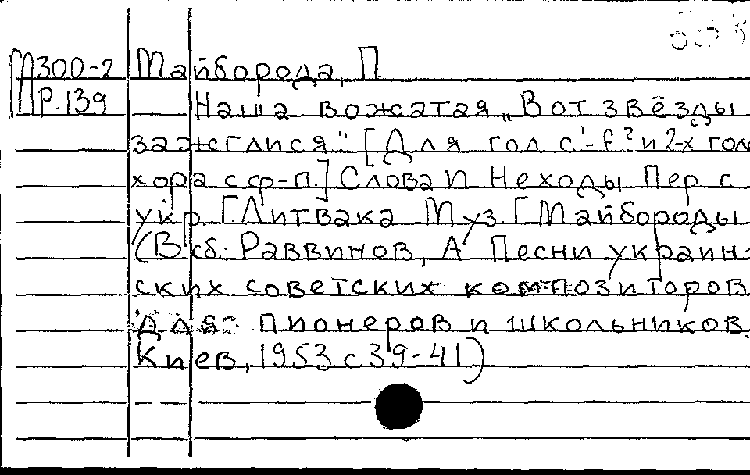 М300-2 Майборода, П
Р.139 Наша вожатая „Вот звёзды
зажглися" [Для гол с¹-f² и 2-х гол
хора с ф-п.] Слова И Неходы Пер с
укр. Г Литвака Муз. Г Майбороды
(В сб: Раввинов, А Песни украин-
ских советских композиторов
для пионеров и школьников.
Киев, 1953 с 39-41)